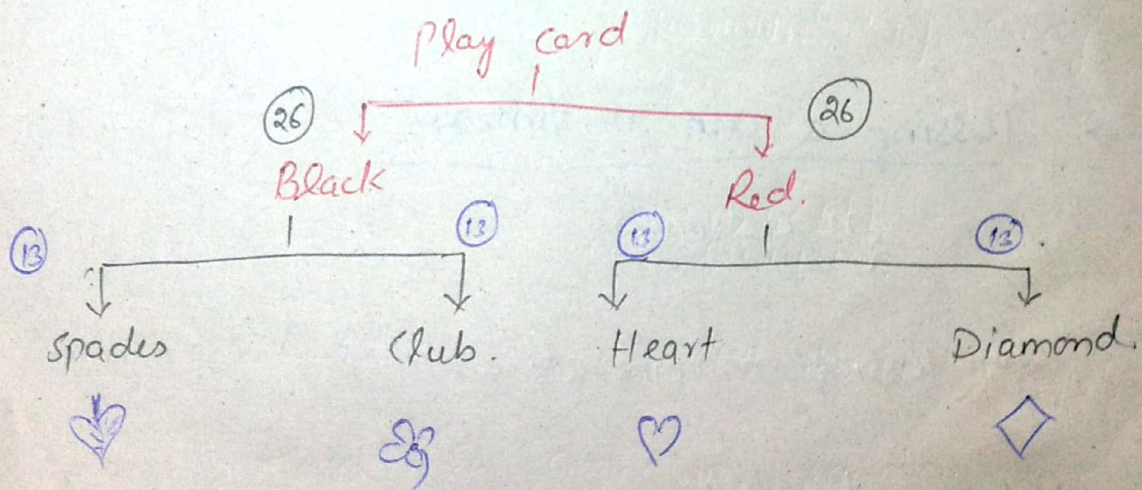 Play Card
26 26
Black Red.
13 13 13 13.
Spades Club. Heart Diamond.